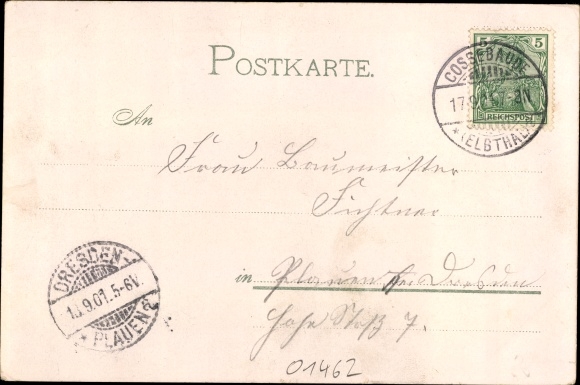 POSTKARTE.
5 5
REICHSPOST
COSSEBAUDE
17.9.
(ELBTHAL)
An
Frau Baumeister
Fichtner
in Plauen Dresden
Hohe Str 7.
DRESDEN-
9.01.5-6V.
PLAUEN
01462